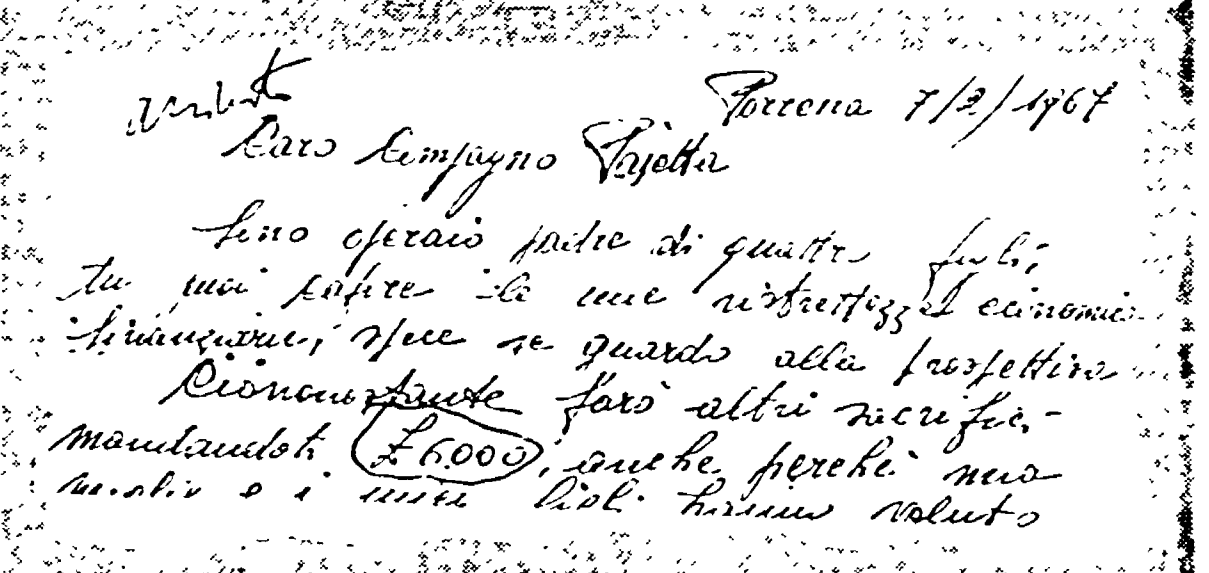 Porrena 7/2/1967
Caro Compagno Pajetta
Sono operaio padre di quattro figli,
tu puoi capire le mie ristrettezze economic
finanziarie, spece se guardo alla prospettiva
Ciononostante farò altri sacrifici
mandandoti £ 6.000, anche perché mia
moglie e i miei figli hanno voluto